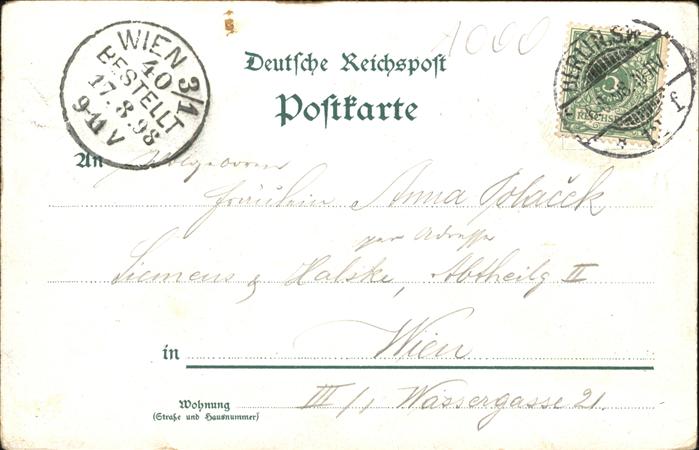 1000
WIEN 3/1
40
BESTELLT
17.8.98
9-11 V
Deutsche Reichspost
Postkarte
An Wolgeboren
Fräulein Anna Polaček
per Adresse
Siemens & Halske, Abtheilg II
in Wien
Wohnung
(Straße und Hausnummer)
III/1 Wassergasse 21.